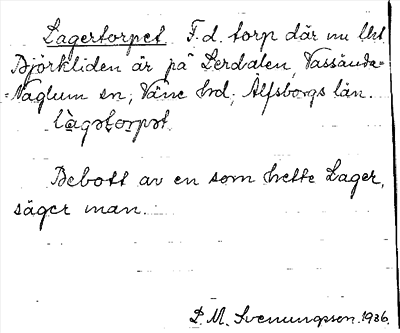 Lagertorpet F. d. torp där nu lht
Björkliden är på Lerdalen, Vassända-
-Naglum sn, Väne hrd, Älfsborgs län.
làgətorpət.
Bebott av en som hette Lager,
säger man.
P. M. Svenungsson. 1936.